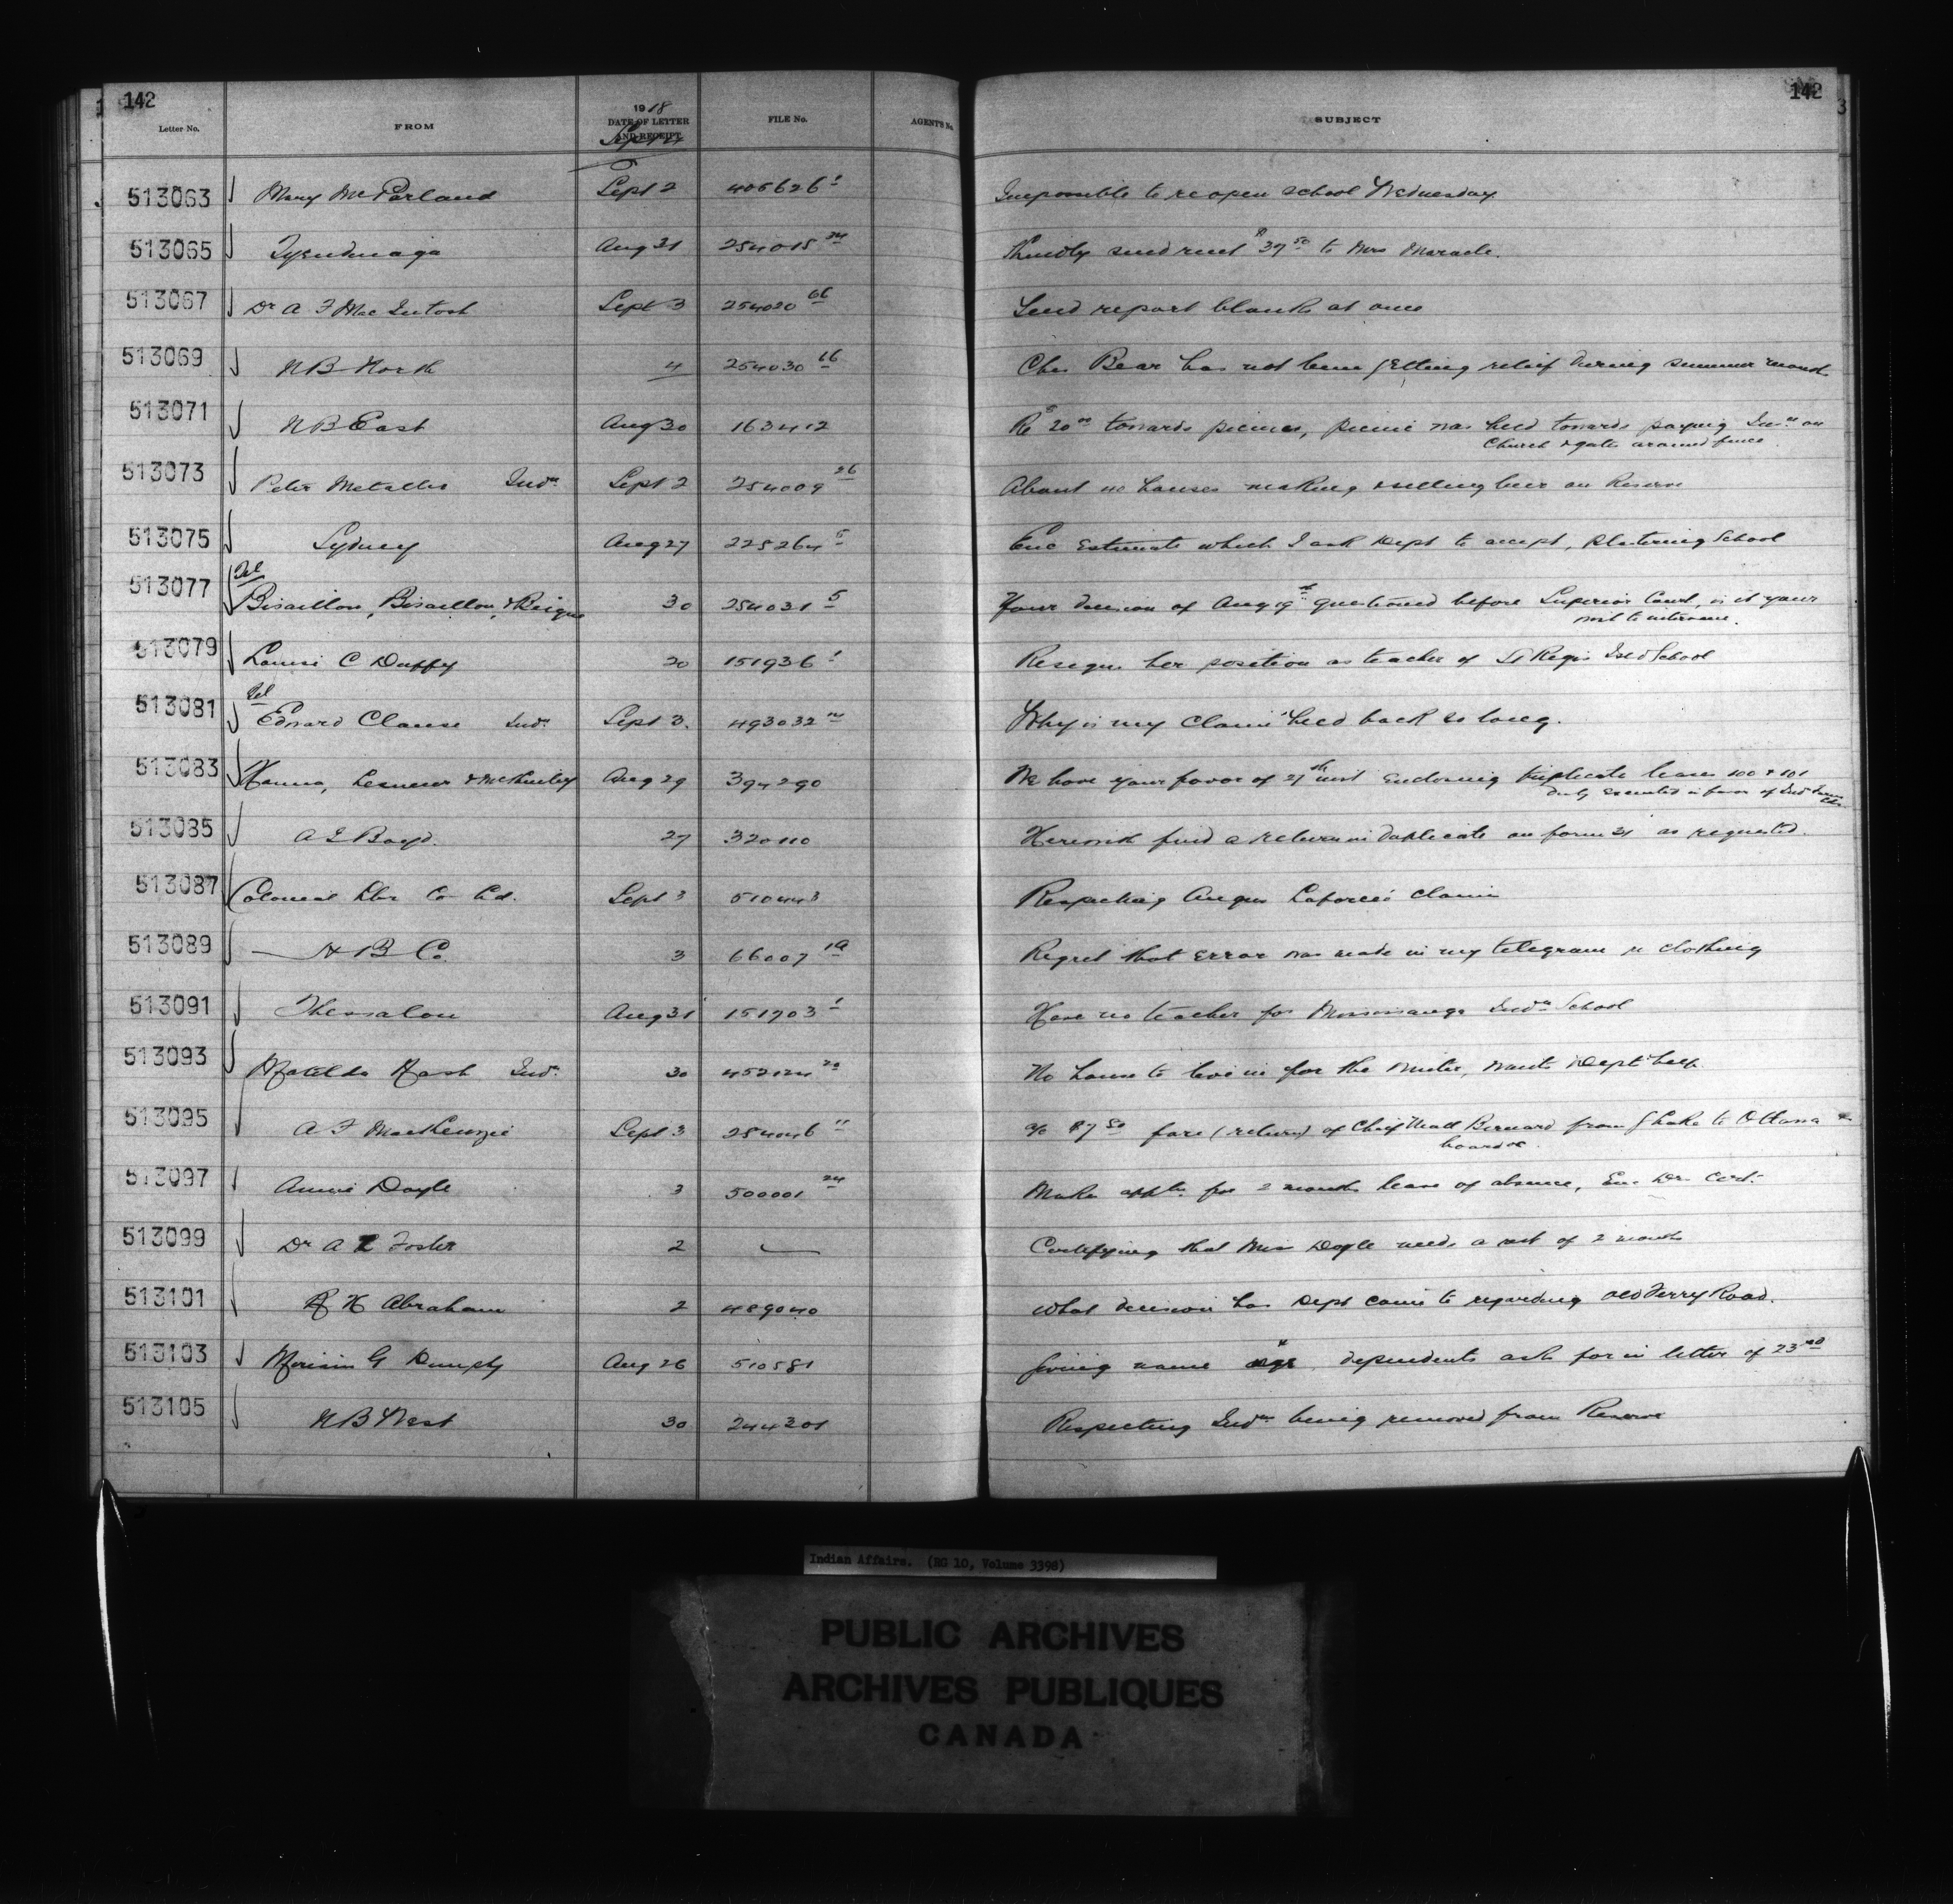 142
142
3
Letter No.
FROM
1918
DATE OF LETTER
AND RECEIPT
Sept 4
FILE No.
AGENT'S No.
SUBJECT
513063 Mary McParland Sept 2 406626 1 Impossible to reopen school Wednesday
513065 Tyendinaga Aug 31 254015 34 Kindly send rent $37 50 to Mrs Maracle.
513067 Dr A F MacIntosh Sept 3 254020 66 Send report blanks at once
513069 N B North 4 254030 16 Chas Bear has not been getting relief during summer month
513071 N B East Aug 30 163412 Re $20 00 towards picnics, picnic was held towards paying Ins ce on
Church & gate around fence.
513073 Peter Metallic Indn. Sept 2 254009 26 About houses making & selling beer on Reserve
513075 Sydney Aug 27 225264 5 Enc Estimate which I ask Dept to accept, Plastering School
513077 Tel
Bisaillon, Bisaillon, & Beique 30 254031 5 Your decision of Aug 19th questioned before Superior Court, is it your
wish to intervene.
513079 Louise C Duffy 20 151936 1 Resigns her position as teacher of St Regis Isld School
513081 Tel
Edward Clause Indn. Sept 3. 493032 Why is my Claim held back so long.
513083 Hanna, Lesueur & McKinley Aug 29 394290 We have your favor of 27th inst Enclosing triplicate leases 100 & 101
duly executed in favor of
513085 A E Boyd. 27 320110 Herewith find a return in duplicate on form 21 as requested.
513087 Colonial Lbr Co Ltd. Sept 3 510443 Respecting Angus Laforce's Claim
513089 H B Co. 3 66007 1A Regret that Error was made in my telegram re clothing
513091 Thessalon Aug 31 151903 1 Have no teacher for Mississauga Indn School
513093 Matilda Nash Indn. 30 452124 20 No house to live in for the winter, wants Dept help.
513095 A F MacKenzie Sept 3 254046 11 a/c $7 50 fare (return) of Chief Matt Bernard from G Lake to Ottawa &
board &c.
513097 Annie Doyle 3 500001 24 Makes appln for 2 months leave of absence, Enc Drs Cert.
513099 Dr A L Foster 2 — Certifying that Miss Doyle needs a rest of 2 months
513101 R H Abraham 2 489040 What decision has Dept come to regarding Old Ferry Road.
513103 Miriam G Dumpty Aug 26 510581 Giving name & age dependents ask for in letter of 23rd
513105 N B West 30 244301 Respecting Indns being removed from Reserve
Indian Affairs. (RG 10, Volume 3398)
PUBLIC ARCHIVES
ARCHIVES PUBLIQUES
CANADA